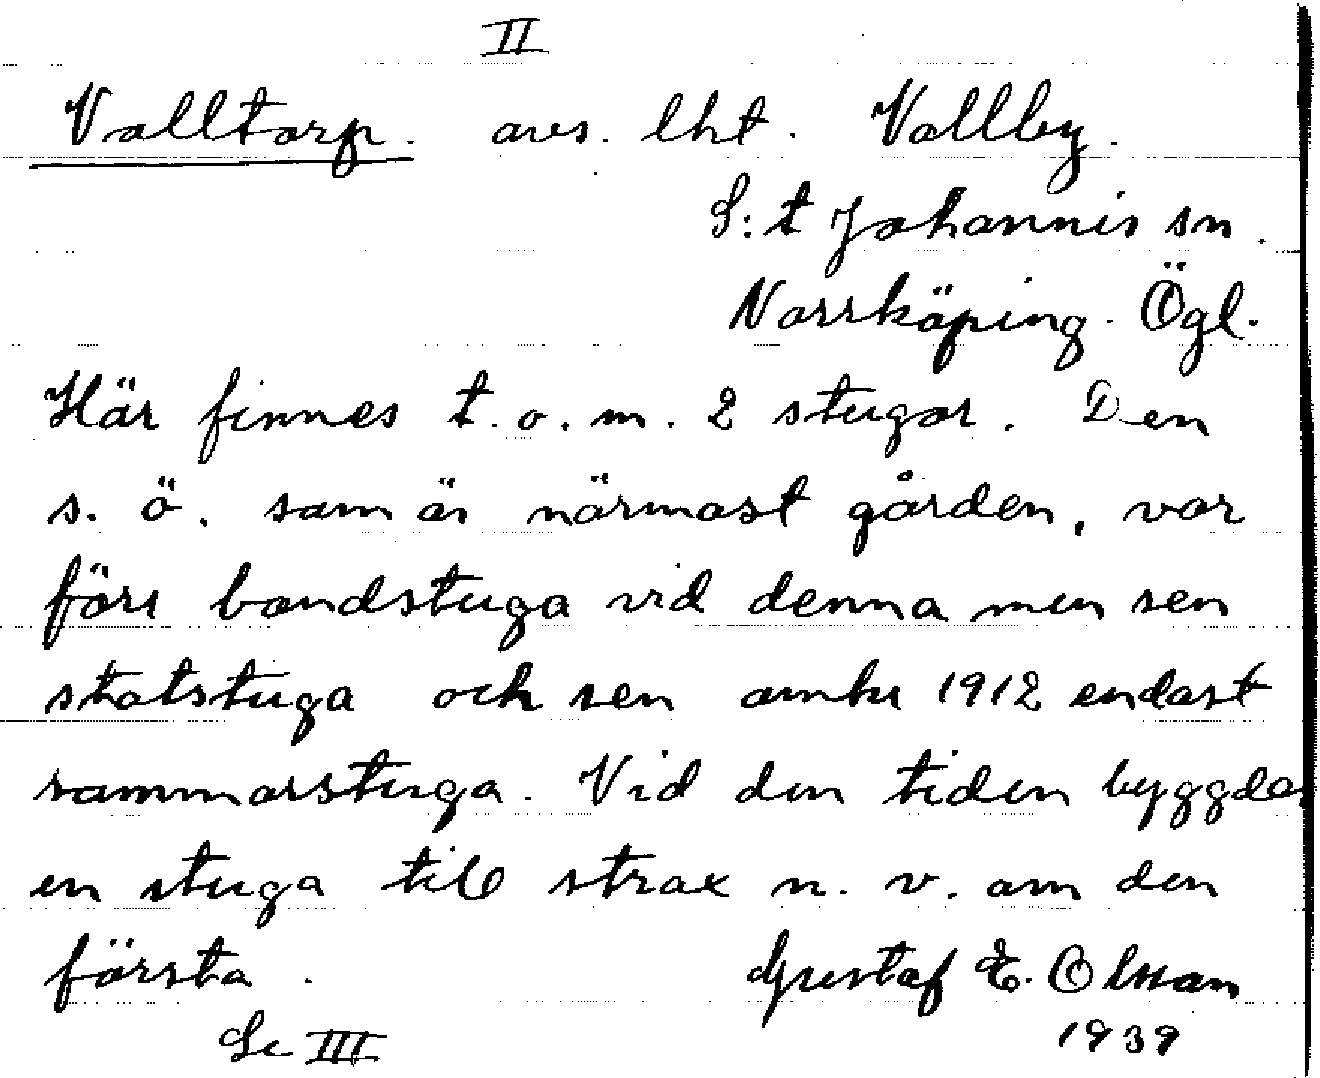 II
Valltorp. avs. lht. Vallby.
S:t Johannis sn.
Norrköping. Ögl.
Här finnes t.o.m. 2 stugor. Den
s.ö. som är närmast gården, var
förr bondstuga vid denna men sen
statstuga och sen omkr 1912 endast
sommarstuga. Vid den tiden byggdes
en stuga till strax n.v. om den
första.
Gustaf E. Olsson
1939
Se III